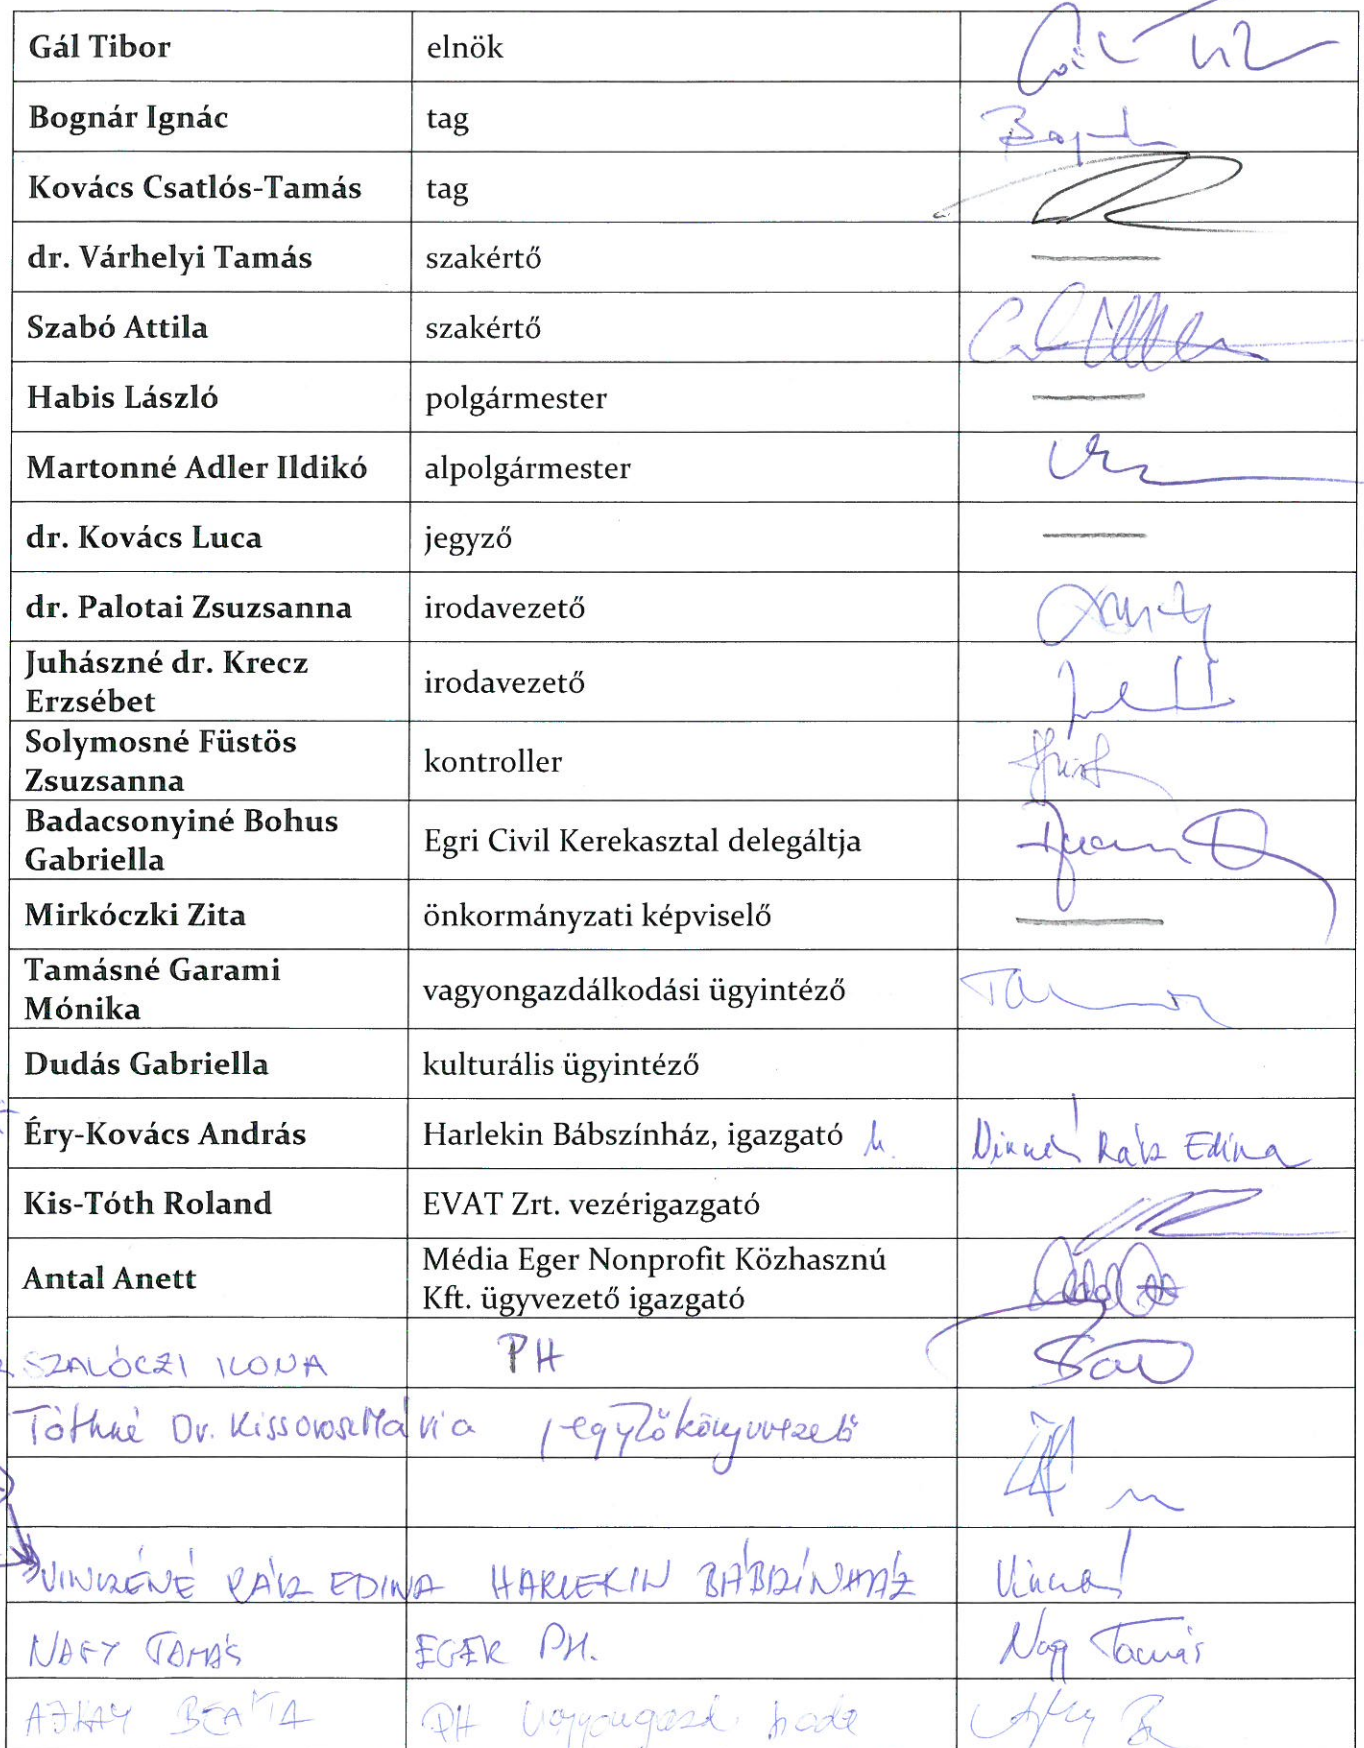 Gál Tibor elnök
Bognár Ignác tag
Kovács Csatlós-Tamás tag
dr. Várhelyi Tamás szakértő
Szabó Attila szakértő
Habis László polgármester
Martonné Adler Ildikó alpolgármester
dr. Kovács Luca jegyző
dr. Palotai Zsuzsanna irodavezető
Juhászné dr. Krecz
Erzsébet irodavezető
Solymosné Füstös
Zsuzsanna kontroller
Badacsonyiné Bohus
Gabriella Egri Civil Kerekasztal delegáltja
Mirkóczki Zita önkormányzati képviselő
Tamásné Garami
Mónika vagyongazdálkodási ügyintéző
Dudás Gabriella kulturális ügyintéző
Éry-Kovács András Harlekin Bábszínház, igazgató h. Edina
Kis-Tóth Roland EVAT Zrt. vezérigazgató
Antal Anett Média Eger Nonprofit Közhasznú
Kft. ügyvezető igazgató
SZALÓCZI ILONA PH
Tóthné Dr. Kissorosz Mária jegyzőkönyvvezető
EDINA HARLEKIN BÁBSZÍNHÁZ
NAGY TAMÁS EGER PH. Nagy Tamás
BEÁTA PH